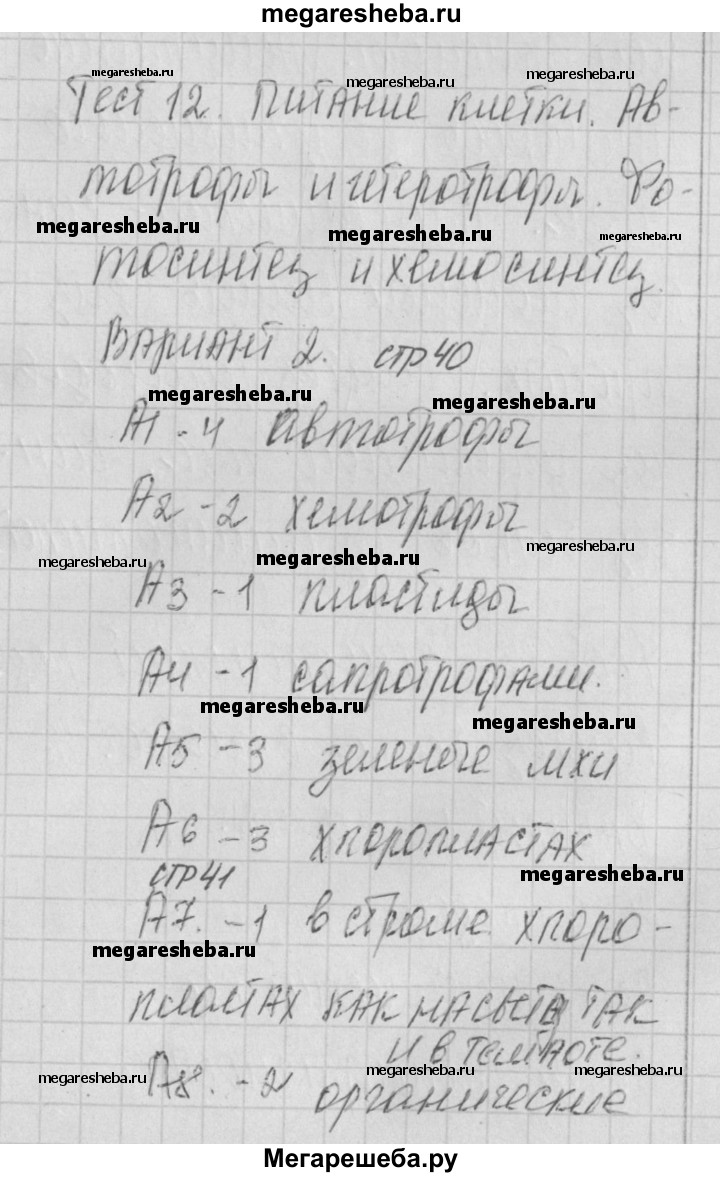 megaresheba.ru
megaresheba.ru megaresheba.ru megaresheba.ru
Тест 12. Питание клетки. Ав-
тотрофы и гетеротрофы. Фо-
megaresheba.ru megaresheba.ru megaresheba.ru
тосинтез и хемосинтез.
Вариант 2. стр 40
megaresheba.ru megaresheba.ru
А1 - 4 автотрофы
А2 - 2 хемотрофы
megaresheba.ru megaresheba.ru megaresheba.ru
А3 - 1 пластиды
А4 - 1 сапротрофами.
megaresheba.ru megaresheba.ru
А5 - 3 зеленые мхи
А6 - 3 хлоропластах
стр 41 megaresheba.ru
А7. - 1 в строме хлоро-
megaresheba.ru
пластах как на свету так
и в темноте.
megaresheba.ru megaresheba.ru megaresheba.ru
А8. - 2 органические
Мегарешеба.ру